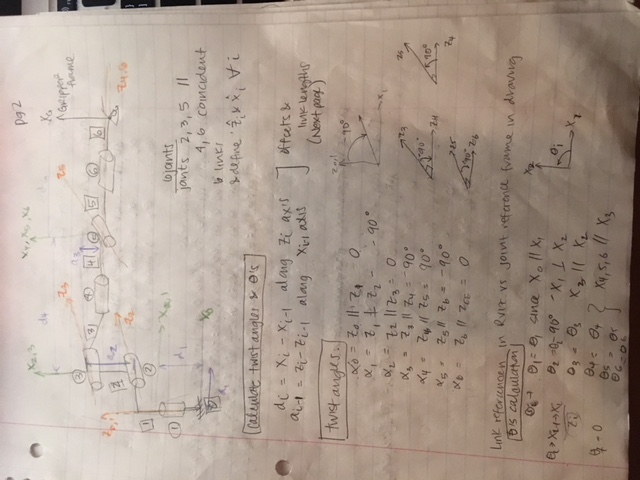 pg. 2
X2,3
X4, X5, X6
d4
Z3
Z5
XG
Gripper frame
③
3
④
4
a3
⑤
5
⑥
6
Z4,6
Z0,1
2
a2
Z2
②
1
①
d1
X0,1
X0
a1
6 joints
joints 2, 3, 5 ||
4, 6 coincident
6 links
& define ẑi & x̂i ∀ i
calculate twist angles & θ's
di = Xi - Xi-1 along Zi axis
ai-1 = Zi - Zi-1 along Xi-1 axis
offsets & link lengths
(Next page)
twist angles:
α0 = Z0 || Z1 = 0
α1 = Z1 ⊥ Z2 - -90°
α2 = Z2 || Z3 = 0
α3 = Z3 || Z4 = -90°
α4 = Z4 || Z5 = 90°
α5 = Z5 || Z6 = -90°
α6 = Z6 || ZEE = 0
Z0,1
-90°
X1
Z3
-90°
Z4
Z5
90°
Z4
Z5
-90°
Z6
Link referencien in RVIZ vs joint reference frame in drawing
θis calculation
θ1 = θ1 since X0 || X1
θ2 = θ2 - 90° ~X1 ⊥ X2
θ3 = θ3 X3 || X2
θ4 = θ4
θ5 = θ5
θ6 = θ6
X4,5,6 || X3
θi > Xi-1 → Xi
Zi
θ7 = 0
X2
θi
X1